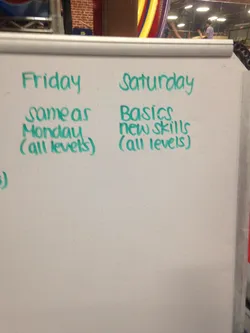 Friday Saturday
same as Basics
Monday new skills
(all levels) (all levels)
)